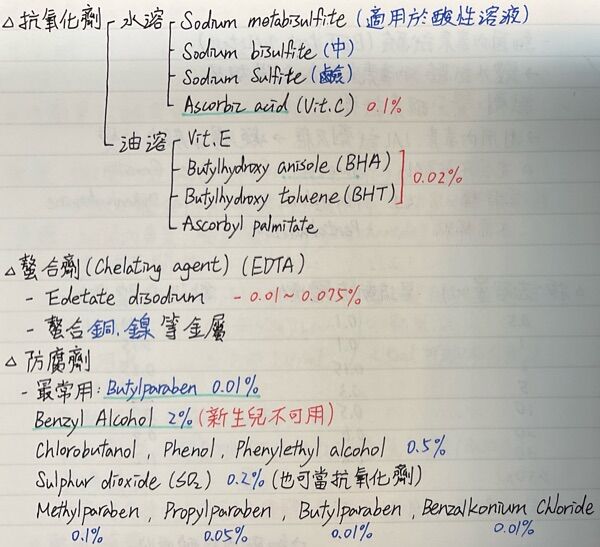 △ 抗氧化劑 水溶 Sodium metabisulfite (適用於酸性溶液)
Sodium bisulfite (中)
Sodium Sulfite (鹼)
Ascorbic acid (Vit.C) 0.1%
油溶 Vit.E
Butylhydroxy anisole (BHA)
0.02%
Butylhydroxy toluene (BHT)
Ascorbyl palmitate
△ 螯合劑 (Chelating agent) (EDTA)
- Edetate disodium - 0.01~0.075%
- 螯合銅、鎳等金屬
△ 防腐劑
- 最常用: Butylparaben 0.01%
Benzyl Alcohol 2% (新生兒不可用)
Chlorobutanol, Phenol, Phenylethyl alcohol 0.5%
Sulphur dioxide (SO₂) 0.2% (也可當抗氧化劑)
Methylparaben, Propylparaben, Butylparaben, Benzalkonium Chloride
0.1% 0.05% 0.01% 0.01%